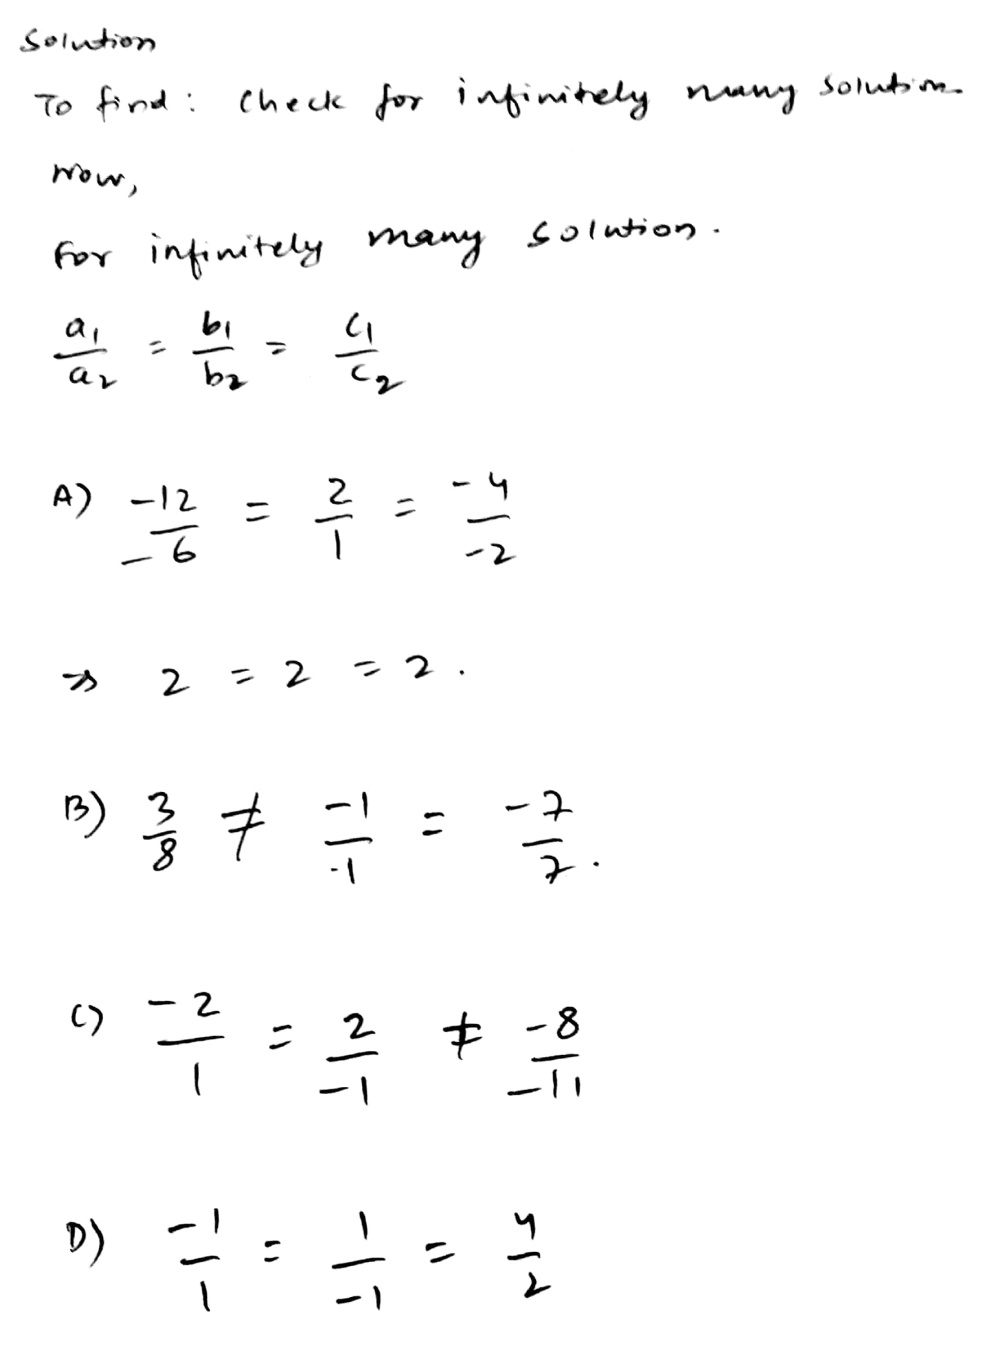 Solution
To find: Check for infinitely many solution.
Now,
For infinitely many solution.
a₁/a₂ = b₁/b₂ = c₁/c₂
A) -12/-6 = 2/1 = -4/-2
⇒ 2 = 2 = 2.
B) 3/8 ≠ -1/-1 = -7/7.
C) -2/1 = 2/-1 ≠ -8/-11
D) -1/1 = 1/-1 = 4/2